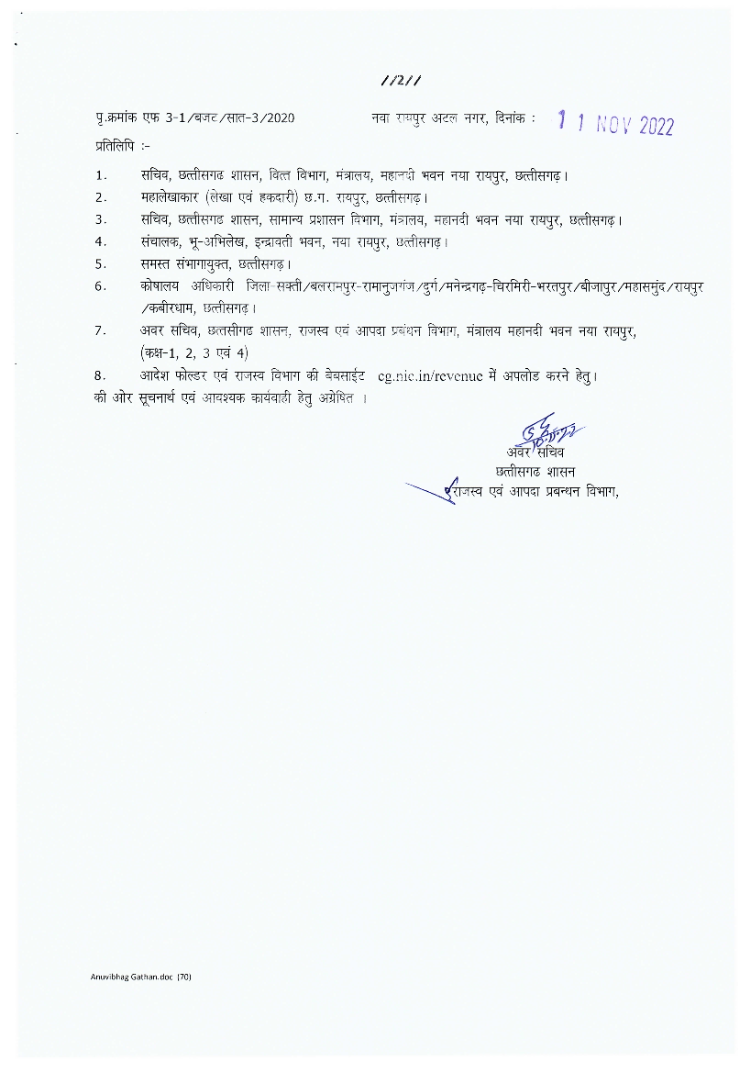 //2//
पृ.क्रमांक एफ 3-1/बजट/सात-3/2020 नवा रायपुर अटल नगर, दिनांक : 11 NOV 2022
प्रतिलिपि :-
1. सचिव, छत्तीसगढ शासन, वित्त विभाग, मंत्रालय, महानदी भवन नया रायपुर, छत्तीसगढ़।
2. महालेखाकार (लेखा एवं हकदारी) छ.ग. रायपुर, छत्तीसगढ़।
3. सचिव, छत्तीसगढ शासन, सामान्य प्रशासन विभाग, मंत्रालय, महानदी भवन नया रायपुर, छत्तीसगढ़।
4. संचालक, भू-अभिलेख, इन्द्रावती भवन, नया रायपुर, छत्तीसगढ़।
5. समस्त संभागायुक्त, छत्तीसगढ़।
6. कोषालय अधिकारी जिला-सक्ती/बलरामपुर-रामानुजगंज/दुर्ग/मनेन्द्रगढ़-चिरमिरी-भरतपुर/बीजापुर/महासमुंद/रायपुर
/कबीरधाम, छत्तीसगढ़।
7. अवर सचिव, छत्तसीगढ शासन, राजस्व एवं आपदा प्रबंधन विभाग, मंत्रालय महानदी भवन नया रायपुर,
(कक्ष-1, 2, 3 एवं 4)
8. आदेश फोल्डर एवं राजस्व विभाग की बेबसाईट cg.nic.in/revenue में अपलोड करने हेतु।
की ओर सूचनार्थ एवं आवश्यक कार्यवाही हेतु अग्रेषित ।
अवर सचिव
छत्तीसगढ शासन
राजस्व एवं आपदा प्रबन्धन विभाग,
Anuvibhag Gathan.doc (70)